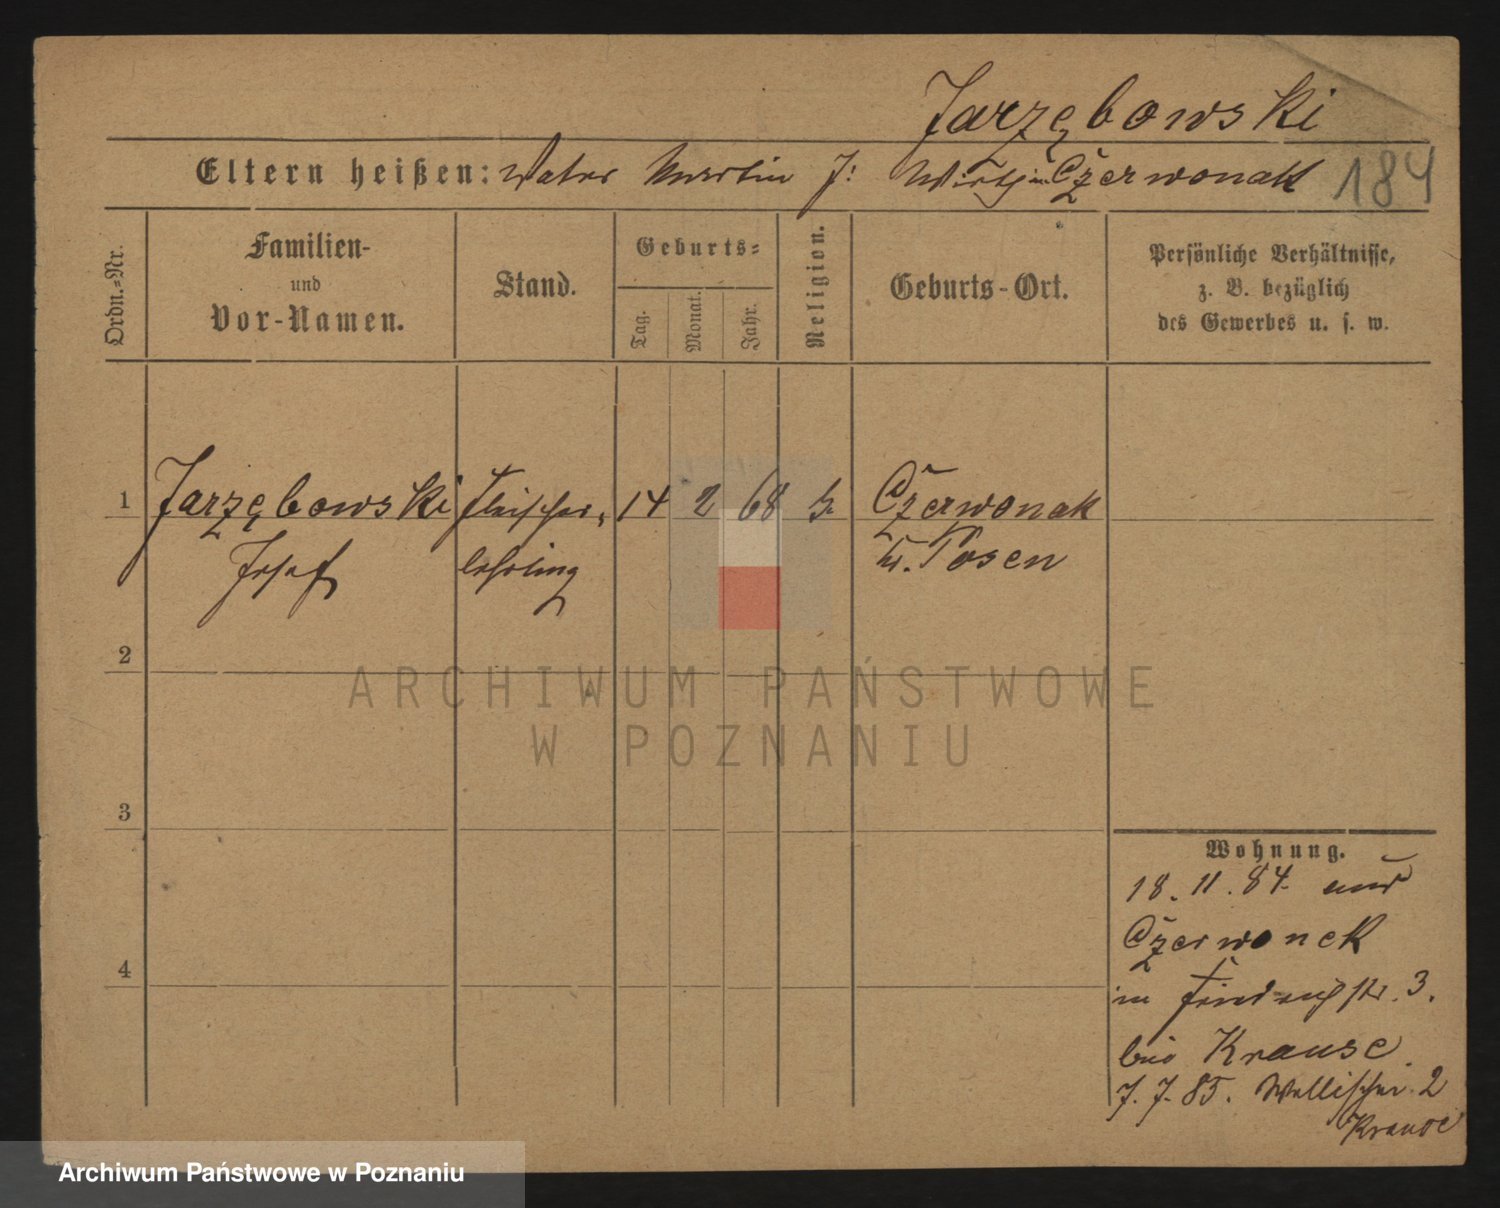 Jarzębowski
Eltern heißen: Vater Martin J: Wirth in Czerwonak 184
Ordn.-Nr.
Familien-
und
Vor-Namen.
Stand.
Geburts-
Tag.
Monat.
Jahr.
Religion.
Geburts-Ort.
Persönliche Verhältnisse,
z. B. bezüglich
des Gewerbes u. s. w.
1 Jarzębowski Fleischer- 14 2 68 Czerwonak
Josef lehrling Kr. Posen
2
3
4
Wohnung.
18. 11. 84. aus
Czerwonek
in Friedrichstr. 3.
bei Krause
7. 7. 85. Wallischei 2
Krause
ARCHIWUM PAŃSTWOWE
W POZNANIU
Archiwum Państwowe w Poznaniu